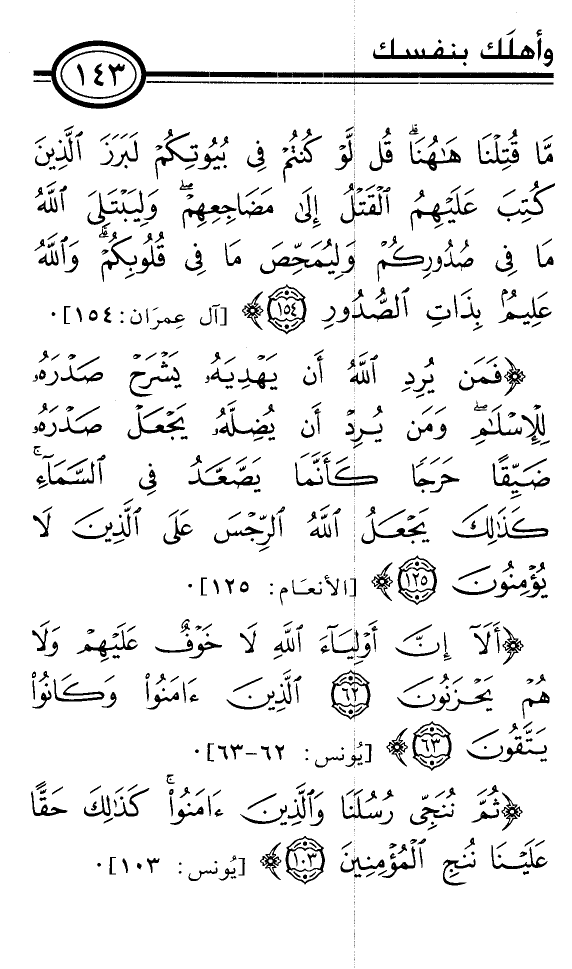 وأهلَك بنفسك
١٤٣
مَّا قُتِلْنَا هَٰهُنَاۗ قُل لَّوْ كُنتُمْ فِى بُيُوتِكُمْ لَبَرَزَ ٱلَّذِينَ
كُتِبَ عَلَيْهِمُ ٱلْقَتْلُ إِلَىٰ مَضَاجِعِهِمْۖ وَلِيَبْتَلِىَ ٱللَّهُ
مَا فِى صُدُورِكُمْ وَلِيُمَحِّصَ مَا فِى قُلُوبِكُمْۗ وَٱللَّهُ
عَلِيمٌۢ بِذَاتِ ٱلصُّدُورِ ﴿١٥٤﴾ [آل عِمرَان: ١٥٤].
﴿فَمَن يُرِدِ ٱللَّهُ أَن يَهْدِيَهُۥ يَشْرَحْ صَدْرَهُۥ
لِلْإِسْلَٰمِۖ وَمَن يُرِدْ أَن يُضِلَّهُۥ يَجْعَلْ صَدْرَهُۥ
ضَيِّقًا حَرَجًا كَأَنَّمَا يَصَّعَّدُ فِى ٱلسَّمَآءِۚ
كَذَٰلِكَ يَجْعَلُ ٱللَّهُ ٱلرِّجْسَ عَلَى ٱلَّذِينَ لَا
يُؤْمِنُونَ ﴿١٢٥﴾ [الأنعام: ١٢٥].
﴿أَلَآ إِنَّ أَوْلِيَآءَ ٱللَّهِ لَا خَوْفٌ عَلَيْهِمْ وَلَا
هُمْ يَحْزَنُونَ ﴿٦٢﴾ ٱلَّذِينَ ءَامَنُوا۟ وَكَانُوا۟
يَتَّقُونَ ﴿٦٣﴾ [يُونس: ٦٢-٦٣].
﴿ثُمَّ نُنَجِّى رُسُلَنَا وَٱلَّذِينَ ءَامَنُوا۟ۚ كَذَٰلِكَ حَقًّا
عَلَيْنَا نُنجِ ٱلْمُؤْمِنِينَ ﴿١٠٣﴾ [يُونس: ١٠٣].